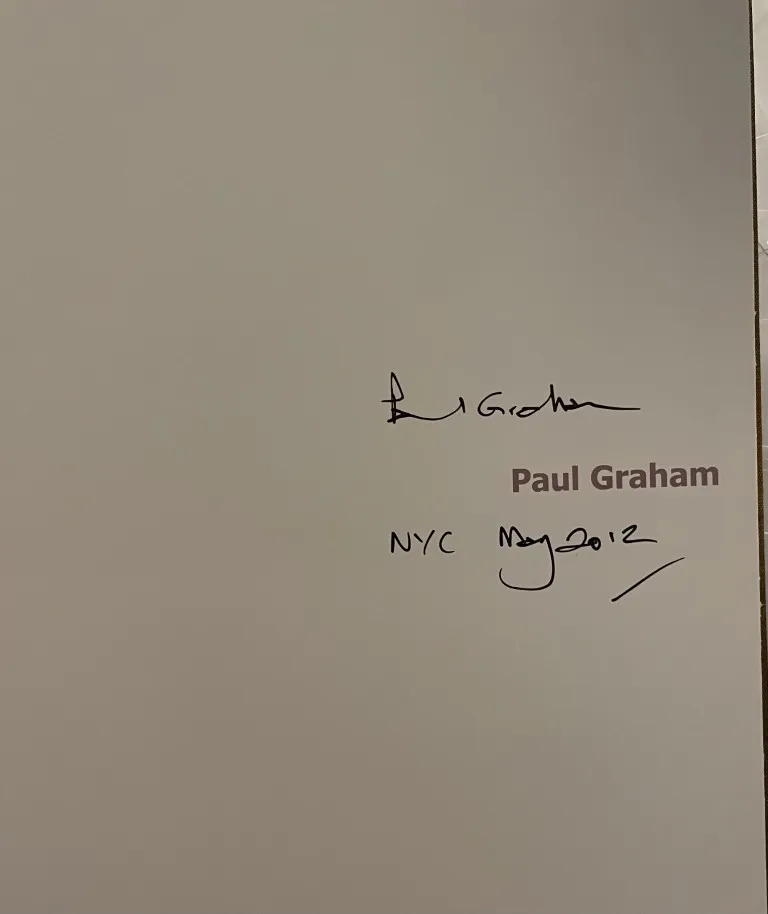 Paul Graham
Paul Graham
NYC May 2012